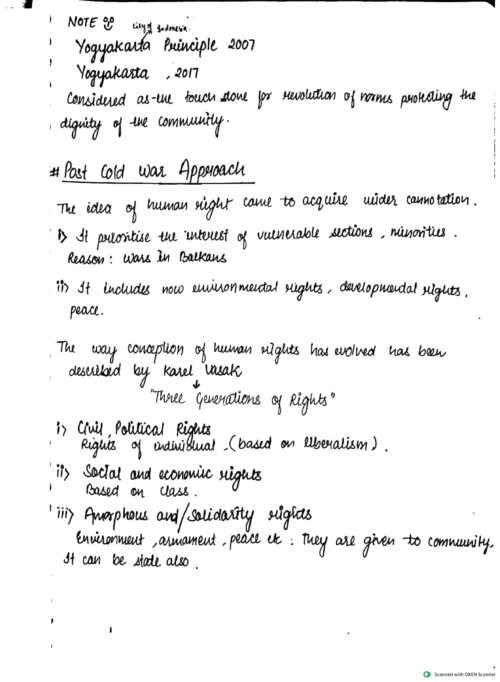 NOTE
city of Indonesia
Yogyakarta Principle 2007
Yogyakarta , 2017
Considered as the touch stone for revolution of norms protecting the
dignity of the community.
# Post Cold War Approach
The idea of human right came to acquire wider connotation.
i) It prioritise the interest of vulnerable sections, minorities.
Reason: wars in Balkans
ii) It includes now environmental rights, developmental rights,
peace.
The way conception of human rights has evolved has been
described by Karel Vasak
"Three Generations of Rights"
i) Civil, Political Rights
Rights of individual. (based on liberalism).
ii) Social and economic rights
Based on class.
iii) Amorphous and/Solidarity rights
Environment, armament, peace etc : They are given to community.
It can be state also.
Scanned with OKEN Scanner